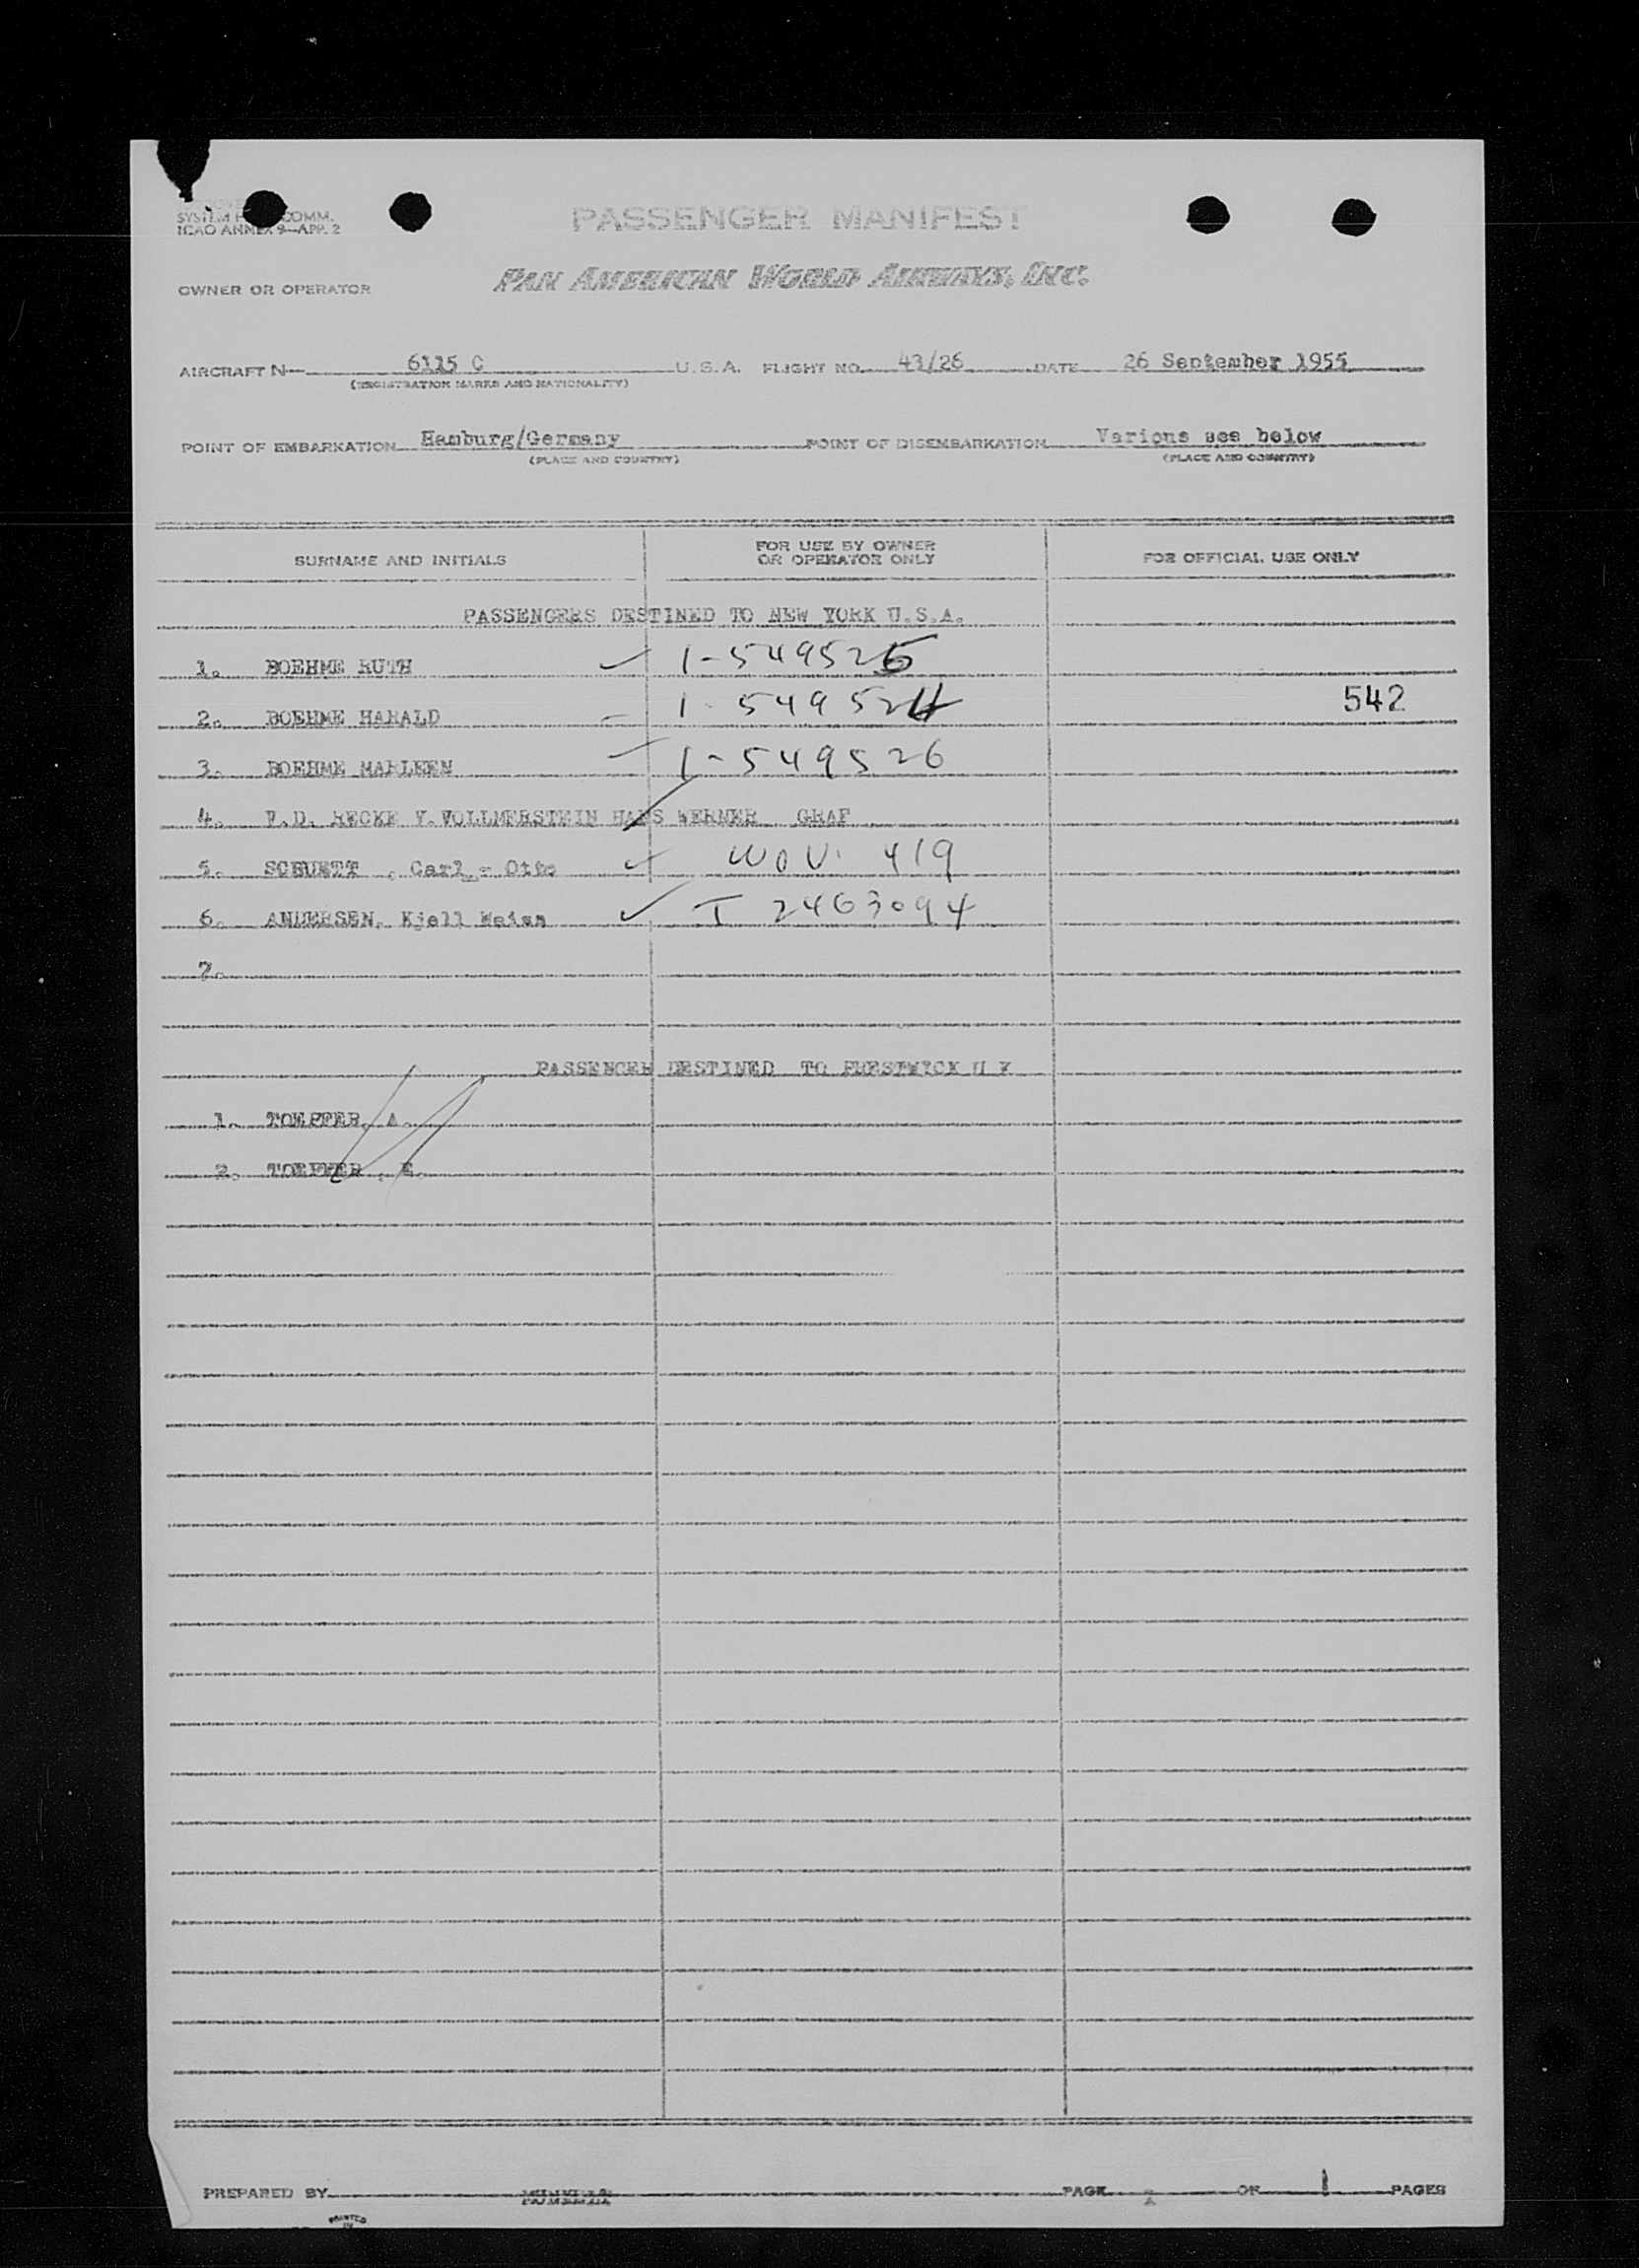 SYSTEM F COMM.
ICAO ANNEX 9—APP. 2
PASSENGER MANIFEST
OWNER OR OPERATOR
PAN AMERICAN WORLD AIRWAYS, INC.
AIRCRAFT N— 6115 C U.S.A. FLIGHT NO. 43/26 DATE 26 September 1955
(REGISTRATION MARKS AND NATIONALITY)
POINT OF EMBARKATION Hamburg/Germany POINT OF DISEMBARKATION Various see below
(PLACE AND COUNTRY) (PLACE AND COUNTRY)
SURNAME AND INITIALS FOR USE BY OWNER OR OPERATOR ONLY FOR OFFICIAL USE ONLY
PASSENGERS DESTINED TO NEW YORK U.S.A.
1. BOEHME RUTH 1-549525
2. BOEHME HARALD 1-549524 542
3. BOEHME MARLEEN 1-549526
4. V.D. RECKE V.VOLLMERSTEIN HANS WERNER GRAF
5. SCHUETT , Carl - Otto 419
6. ANDERSEN, Kjell I 2463094
7.
PASSENGER DESTINED TO PRESTWICK U K
1. TOEPFER, A.
2. TOEPFER , E.
PREPARED BY PAGE OF 1 PAGES
PRINTED
IN